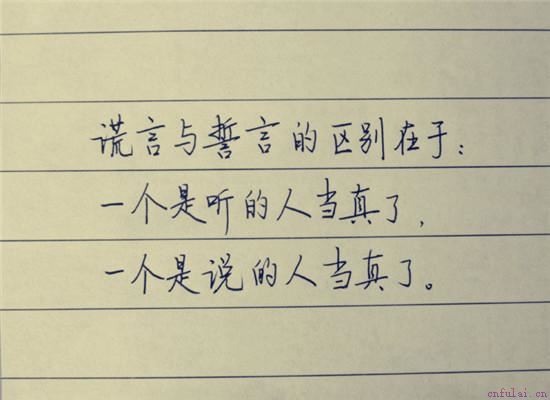 谎言与誓言的区别在于：
一个是听的人当真了，
一个是说的人当真了。
cnfulai.cn